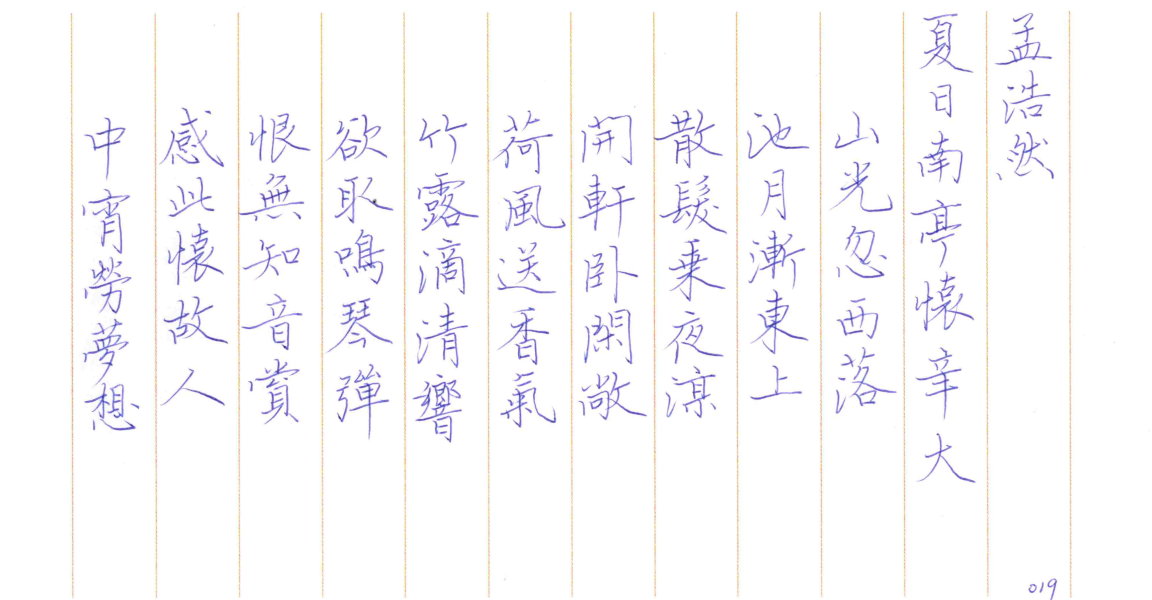 孟浩然
夏日南亭懷辛大
山光忽西落
池月漸東上
散髮乗夜涼
開軒卧閑敞
荷風送香氣
竹露滴清響
欲取鳴琴彈
恨無知音賞
感此懷故人
中宵勞夢想
019